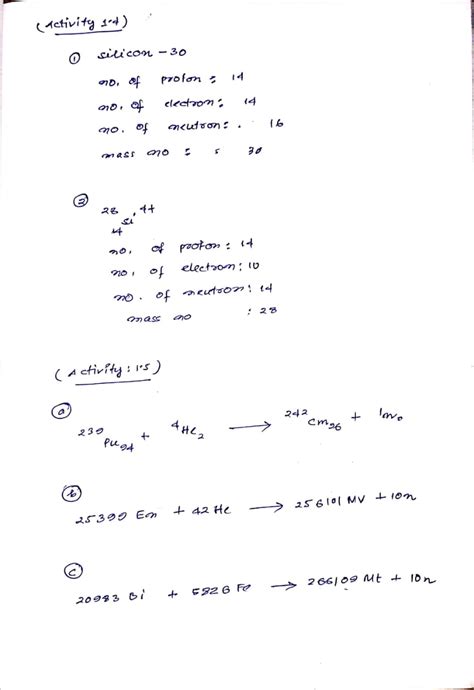 (Activity 1.4)
① silicon - 30
no. of proton : 14
no. of electron : 14
no. of neutron : . 16
mass no : 30
②
28 4+
Si
14
no. of proton : 14
no. of electron : 10
no. of neutron : 14
mass no : 28
(Activity : 1.5)
ⓐ
²³⁹Pu₉₄ + ⁴He₂ → ²⁴²Cm₉₆ + ¹n₀
ⓑ
25399 Es + 42 He → 256101 MV + 10n
ⓒ
20983 Bi + 5826 Fe → 266109 Mt + 10n